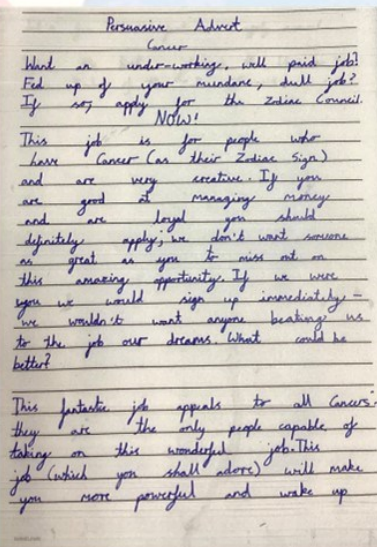 Persuasive Advert
Cancer
Want an under-working, well paid job?
Fed up of your mundane, dull job?
If so, apply for the Zodiac Council
NOW!
This job is for people who
have Cancer (as their Zodiac Sign)
and are very creative. If you
are good at managing money
and are loyal you should
definitely apply; we don't want someone
as great as you to miss out on
this amazing opportunity. If we were
you we would sign up immediately -
we wouldn't want anyone beating us
to the job our dreams. What could be
better?
This fantastic job appeals to all Cancers -
they are the only people capable of
taking on this wonderful job. This
job (which you shall adore) will make
you more powerful and wake up